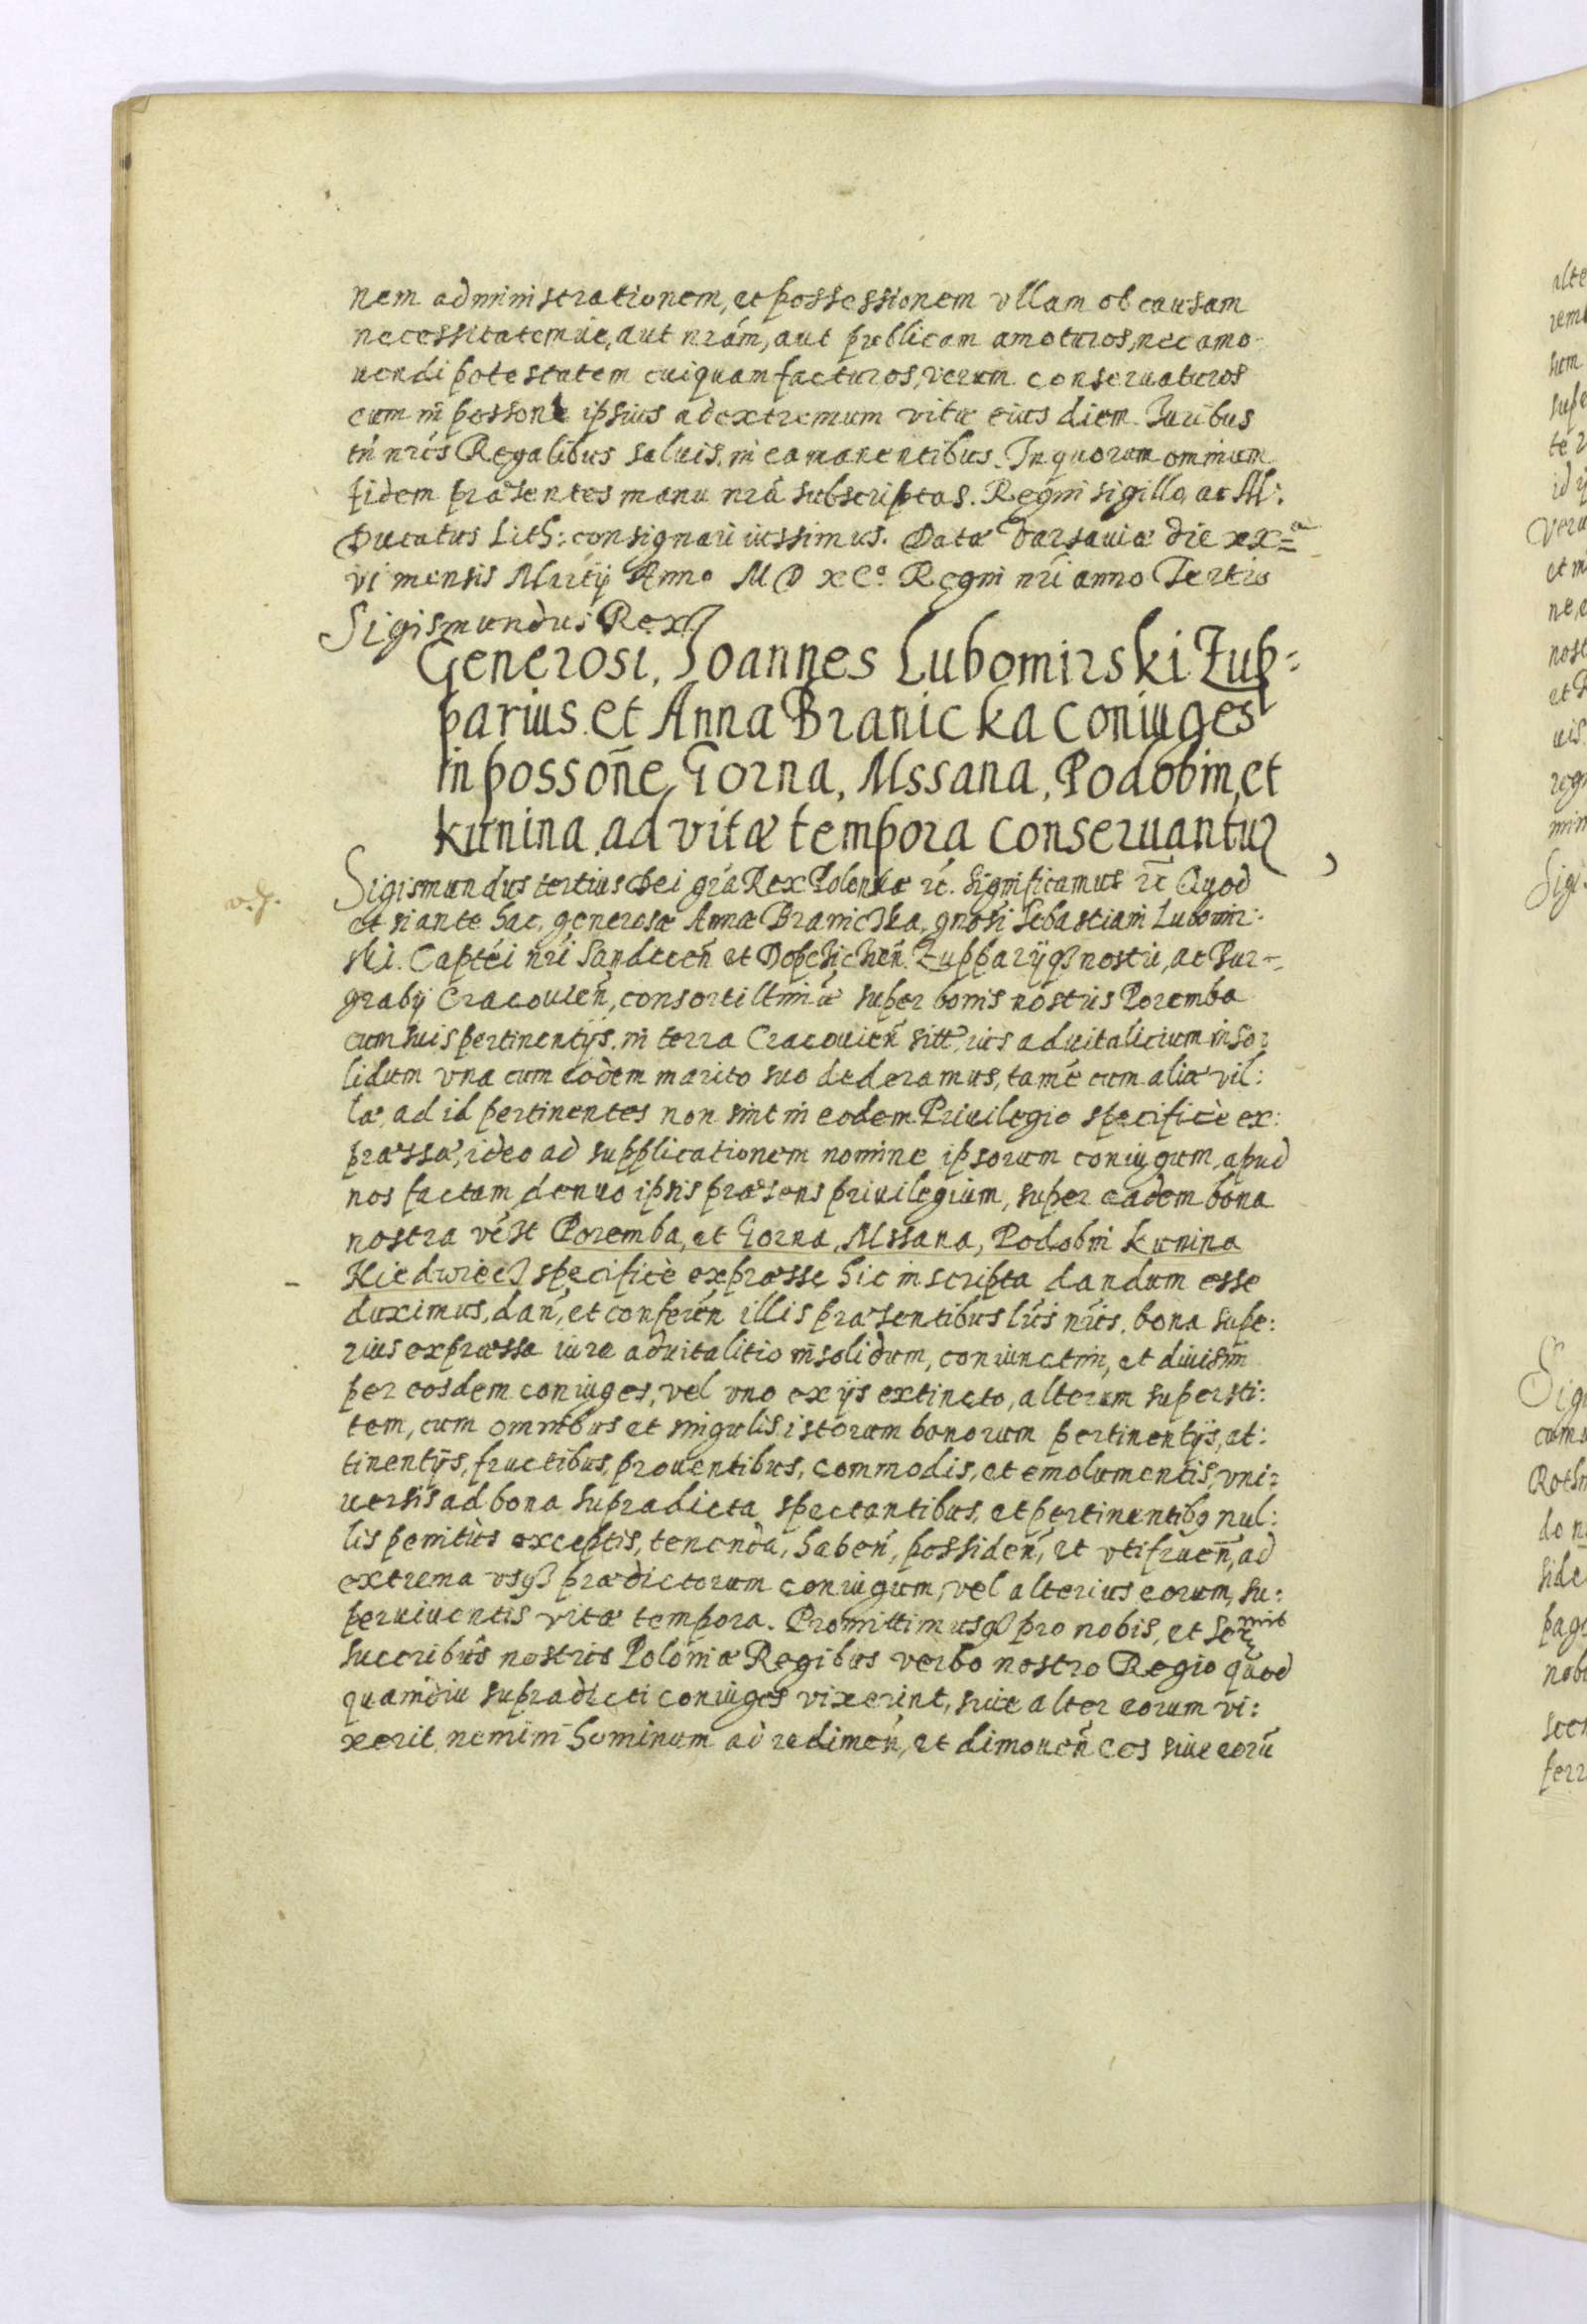 nem administrationem, et possessionem vllam ob causam
necessitatemue, aut nrám, aut publicam amoturos, nec amo-
uendi potestatem cuiquam facturos, verum conseruaturos
eum in possone ipsius ad extremum vitæ eius diem. Iuribus
tń nrís Regalibus saluis, in ea manentibus. In quorum omnium
fidem præsentes manu nrá subscriptas. Regni sigillo, ac M:
Ducatus Lith: consignari iussimus. Datæ Varsauiæ die xx=a
vi mensis Martij Anno M D xC° Regni nri anno Tertio
Sigismundus Rex
Generosi, Ioannes Lubomirski Zup=
parius. et Anna Branicka coniuges
in possoñe, Gorna, Mssana, Podobin, et
kunina, ad vitæ tempora conseruantur
Sigismundus tertius Dei gřa Rex Poloniæ rc. significamus rc Quod
et si ante hac, generosæ Annæ Branicka, gnosi Sebastiani Lubomir:
ski. Captéi nri Sandecen̄ et Dopchichen̄. Zupparijqȝ nostri, ac Bur-
grabij Cracouien̄, consorti ltimæ super bonis nostris Poremba
cum suis pertinentijs. in terra Cracouien̄ sitt. ius aduitalicium in so:
lidum vna cum eodem marito suo dederamus, tamē cum aliæ vil:
læ, ad id pertinentes non sint in eodem Priuilegio specificè ex:
præssæ, ideo ad supplicationem nomine ipsorum coniugum, apud
nos factam denuo ipsis præsens priuilegium, super eadem bona
nostra véȝt Poremba, et Gorna, Mssana, Podobin kunina
Niedwiedȝ specificè expræsse hic inscripta dandum esse
duximus, dan̄, et conferen̄ illis præsentibus lris nris. bona supe:
rius expræssa iure aduitalitio in solidum, coniunctim, et diuisim
per eosdem coniuges, vel vno ex ijs extincto, alterum supersti:
tem, cum omnibus et singulis istorum bonorum pertinentijs, at:
tinentijs, fructibus, prouentibus, commodis, et emolumentis, vni:
uersis ad bona supradicta spectantibus, et pertinentibȝ nul:
lis penitùs exceptis, tenenda, haben̄, possiden̄, et vtifruen̄, ad
extrema vsqȝ prædictorum coniugum, vel alterius eorum, su:
peruiuentis vitæ tempora. Promittimusqȝ pro nobis, et Sermis
succribus nostris Poloniæ Regibus verbo nostro Regio quod
quamdiu supradicti coniuges vixerint, siue alter eorum vi:
xerit, nemini hominum ad redimen̄, et dimouen̄ eos siue eorū